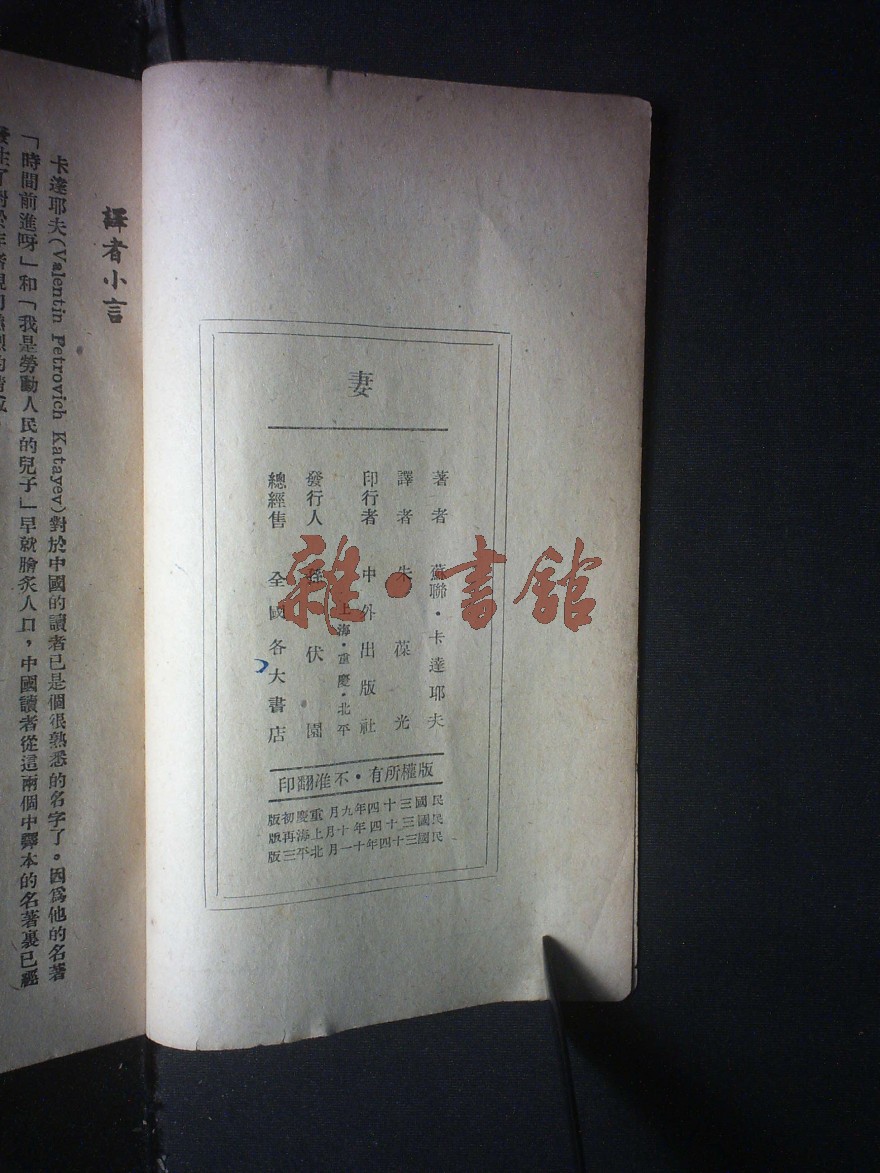 妻
著者 蘇聯・卡達耶夫
譯者 朱葆光
印行者 中外出版社
上海・重慶・北平
發行人 孫伏園
總經售 全國各大書店
印翻准不・有所權版
版初慶重月九年四十三國民
版再海上月十年四十三國民
版三平北月一十年四十三國民
雜・書館
譯者小言
卡達耶夫(Valentin Petrovich Katayev)對於中國的讀者已是個很熟悉的名字了。因爲他的名著
「時間前進呀」和「我是勞動人民的兒子」早就膾炙人口,中國讀者從這兩個中譯本的名著裏已經